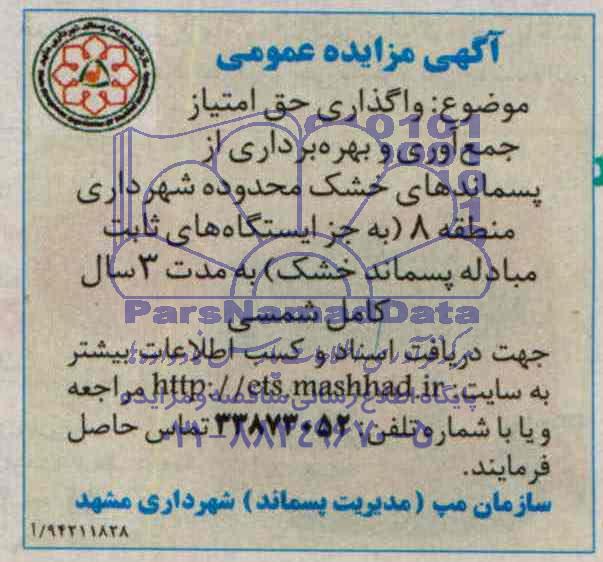 آگهی مزایده عمومی
موضوع: واگذاری حق امتیاز
جمع‌آوری و بهره‌برداری از
پسماندهای خشک محدوده شهرداری
منطقه ۸ (به جز ایستگاه‌های ثابت
مبادله پسماند خشک) به مدت ۳ سال
کامل شمسی
ParsNamadData
جهت دریافت اسناد و کسب اطلاعات بیشتر
به سایت: http://ets.mashhad.ir مراجعه
و یا با شماره تلفن: ۳۳۸۷۳۰۵۲ تماس حاصل
فرمایند.
سازمان مپ (مدیریت پسماند) شهرداری مشهد
۹۴۲۱۱۸۲۸/أ